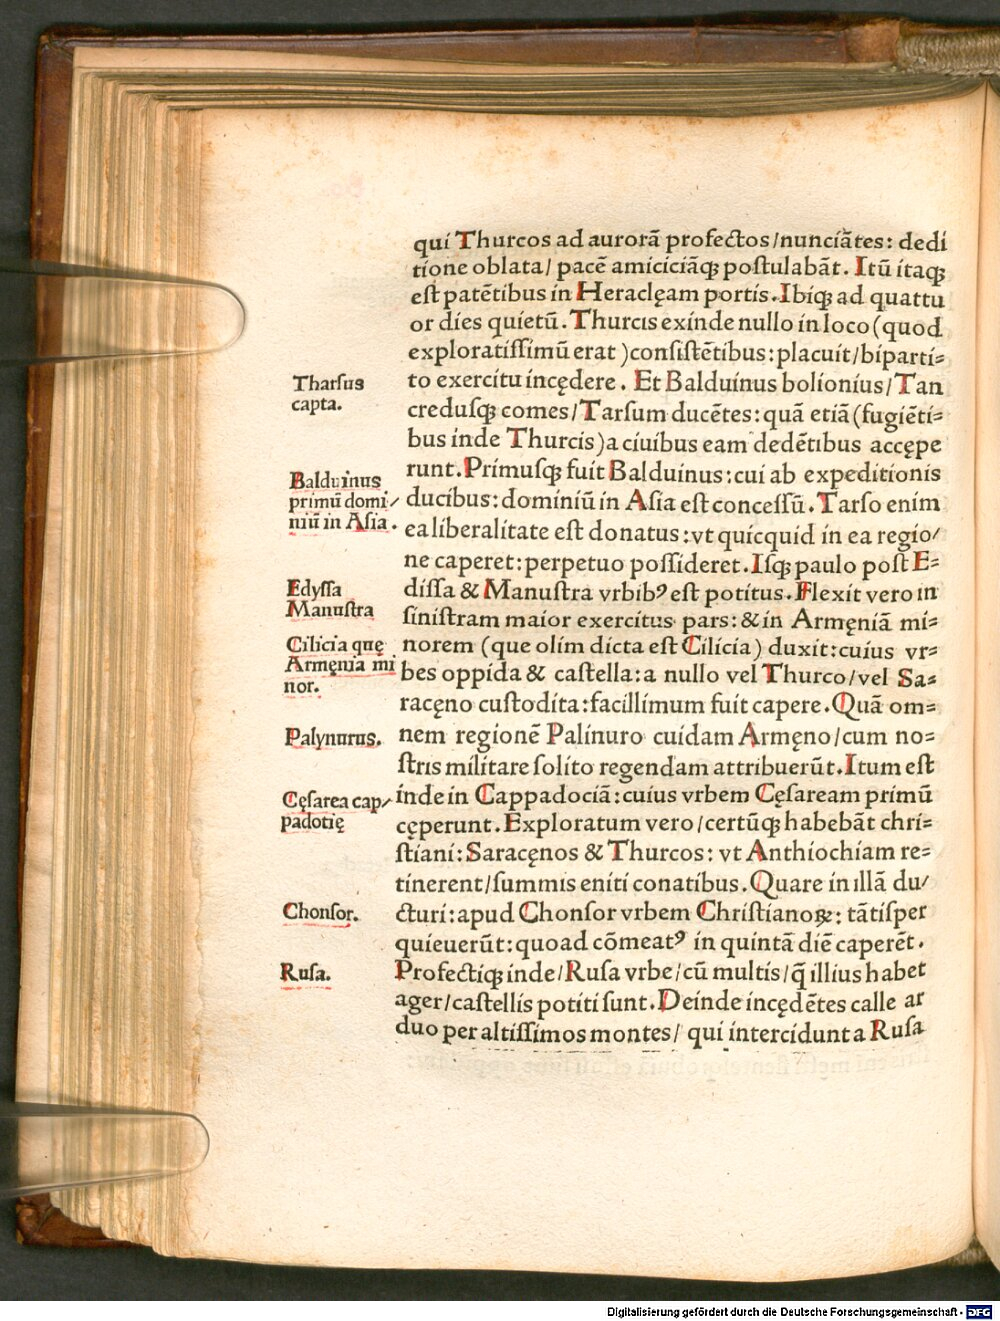 qui Thurcos ad aurorā profectos/nunciātes: dedi
tione oblata/ pacē amiciciāqꝫ postulabāt. Itū itaqꝫ
est patētibus in Heraclęam portis. Ibiqꝫ ad quattu
or dies quietū. Thurcis exinde nullo in loco (quod
exploratissimū erat) consistētibus: placuit/biparti⸗
to exercitu incędere. Et Balduinus bolionius/Tan
credusqꝫ comes/Tarsum ducētes: quā etiā (fugiēti⸗
bus inde Thurcis) a ciuibus eam dedētibus accępe
runt. Primusqꝫ fuit Balduinus: cui ab expeditionis
ducibus: dominiū in Asia est concessū. Tarso enim
ea liberalitate est donatus: vt quicquid in ea regio/
ne caperet: perpetuo possideret. Isqꝫ paulo post E⸗
dissa & Manustra vrbibꝰ est potitus. Flexit vero in
sinistram maior exercitus pars: & in Armęniā mi⸗
norem (que olim dicta est Cilicia) duxit: cuius vr⸗
bes oppida & castella: a nullo vel Thurco/vel Sa⸗
racęno custodita: facillimum fuit capere. Quā om⸗
nem regionē Palinuro cuidam Armęno/cum no⸗
stris militare solito regendam attribuerūt. Itum est
inde in Cappadociā: cuius vrbem Cęsaream primū
cęperunt. Exploratum vero/certūqꝫ habebāt chri⸗
stiani: Saracęnos & Thurcos: vt Anthiochiam re⸗
tinerent/summis eniti conatibus. Quare in illā du/
cturi: apud Chonsor vrbem Christianoꝝ: tātisper
quieuerūt: quoad cōmeatꝰ in quintā diē caperēt.
Profectiqꝫ inde/Rusa vrbe/cū multis/q̄ illius habet
ager/castellis potiti sunt. Deinde incędētes calle ar
duo per altissimos montes/ qui intercidunt a Rusa
Tharsus
capta.
Balduinus
primū domi/
niū in Asia.
Edyssa
Manustra
Cilicia quę
Armęnia mi
nor.
Palynurus.
Cęsarea cap/
padotię
Chonsor.
Rusa.
Digitalisierung gefördert durch die Deutsche Forschungsgemeinschaft - DFG